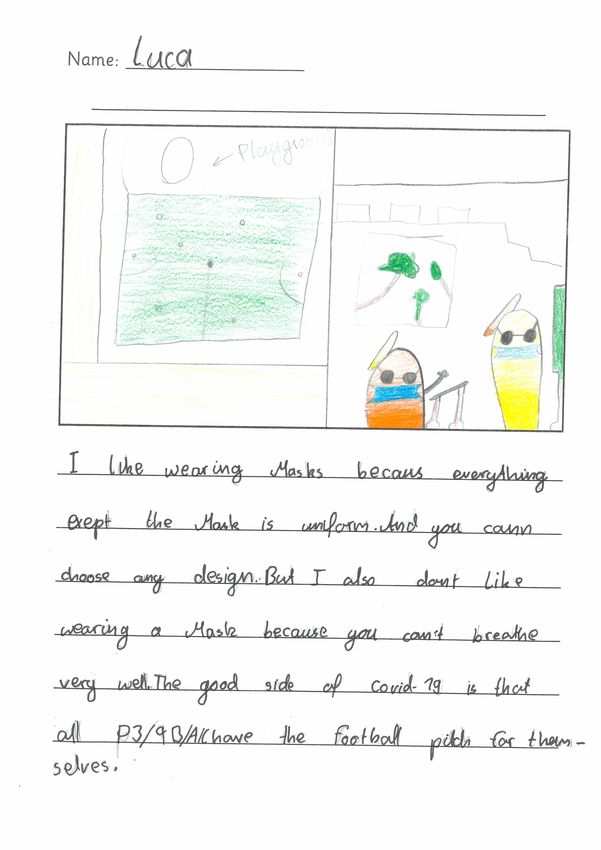 Name: Luca
← Playground
I like wearing Masks becaus everything
exept the Mask is uniform. And you cann
choose any design. But I also dont like
wearing a Mask because you can't breathe
very well. The good side of covid-19 is that
all have the football pitch for them-
selves.